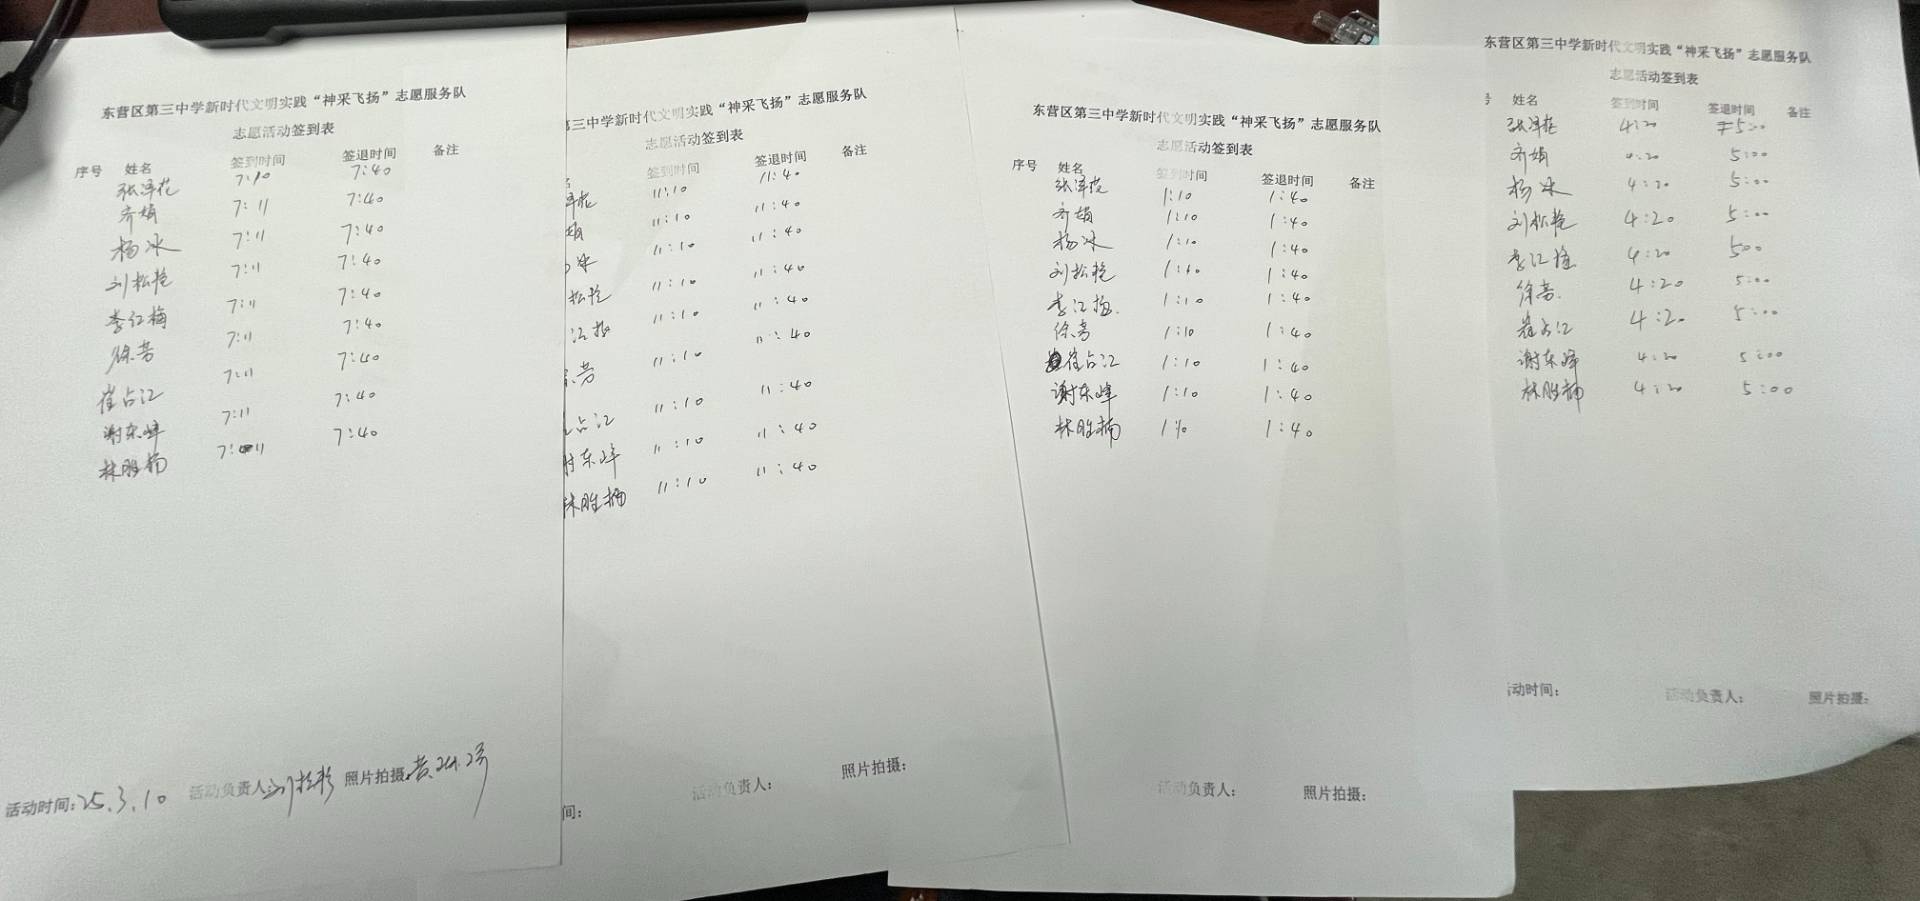 东营区第三中学新时代文明实践“神采飞扬”志愿服务队
志愿活动签到表
序号 姓名 签到时间 签退时间 备注
张泽花 7:10 7:40
齐娟 7:11 7:40
杨冰 7:11 7:40
刘松艳 7:11 7:40
李红梅 7:11 7:40
徐芳 7:11 7:40
崔占江 7:11 7:40
谢东峰 7:11 7:40
林胜楠 7:11 7:40
活动时间:25.3.10 活动负责人: 照片拍摄:
第三中学新时代文明实践“神采飞扬”志愿服务队
志愿活动签到表
名 签到时间 签退时间 备注
泽花 11:10 11:40
娟 11:10 11:40
冰 11:10 11:40
松艳 11:10 11:40
江梅 11:10 11:40
芳 11:10 11:40
占江 11:10 11:40
谢东峰 11:10 11:40
林胜楠 11:10 11:40
间: 活动负责人: 照片拍摄:
东营区第三中学新时代文明实践“神采飞扬”志愿服务队
志愿活动签到表
序号 姓名 签到时间 签退时间 备注
张泽花 1:10 1:40
齐娟 1:10 1:40
杨冰 1:10 1:40
刘松艳 1:10 1:40
李江梅 1:10 1:40
徐芳 1:10 1:40
崔占江 1:10 1:40
谢东峰 1:10 1:40
林胜楠 1:10 1:40
活动负责人: 照片拍摄:
东营区第三中学新时代文明实践“神采飞扬”志愿服务队
志愿活动签到表
号 姓名 签到时间 签退时间 备注
张泽花 4:20 5:00
齐娟 4:20 5:00
杨冰 4:20 5:00
刘松艳 4:20 5:00
李江梅 4:20 500
徐芳 4:20 5:00
崔占江 4:20 5:00
谢东峰 4:20 5:00
林胜楠 4:20 5:00
活动时间: 活动负责人: 照片拍摄: